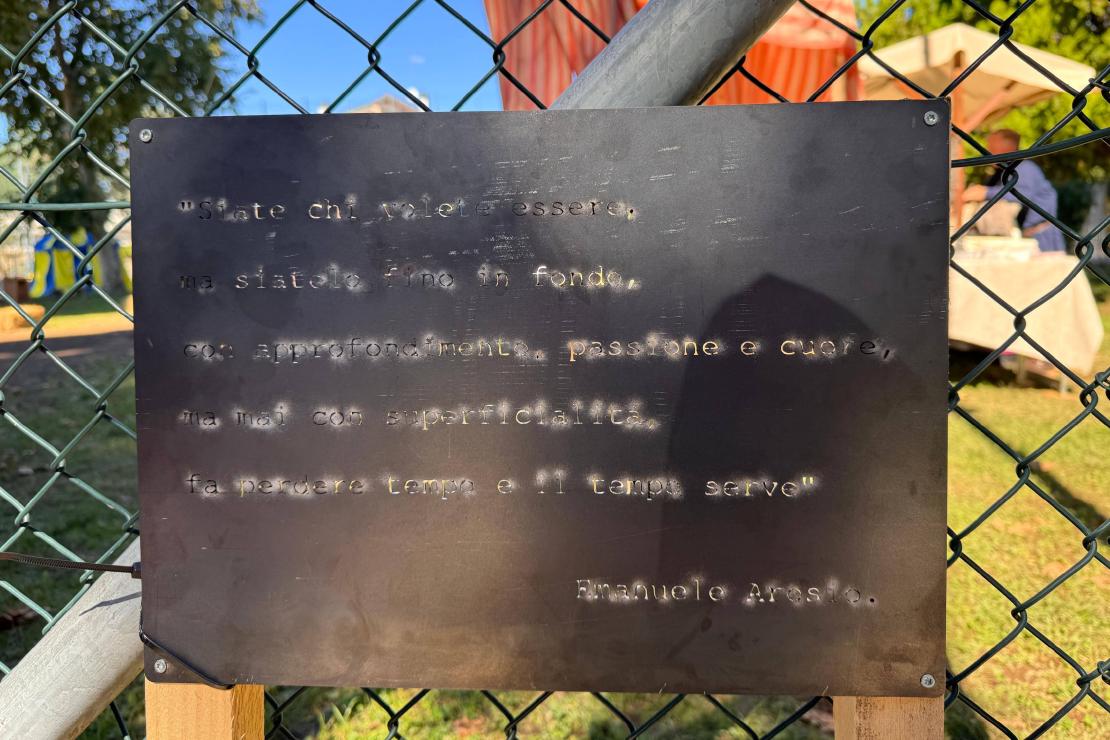 "Siate chi volete essere,
ma siatelo fino in fondo,
con approfondimento, passione e cuore,
ma mai con superficialità,
fa perdere tempo e il tempo serve"
Emanuele Aresio.